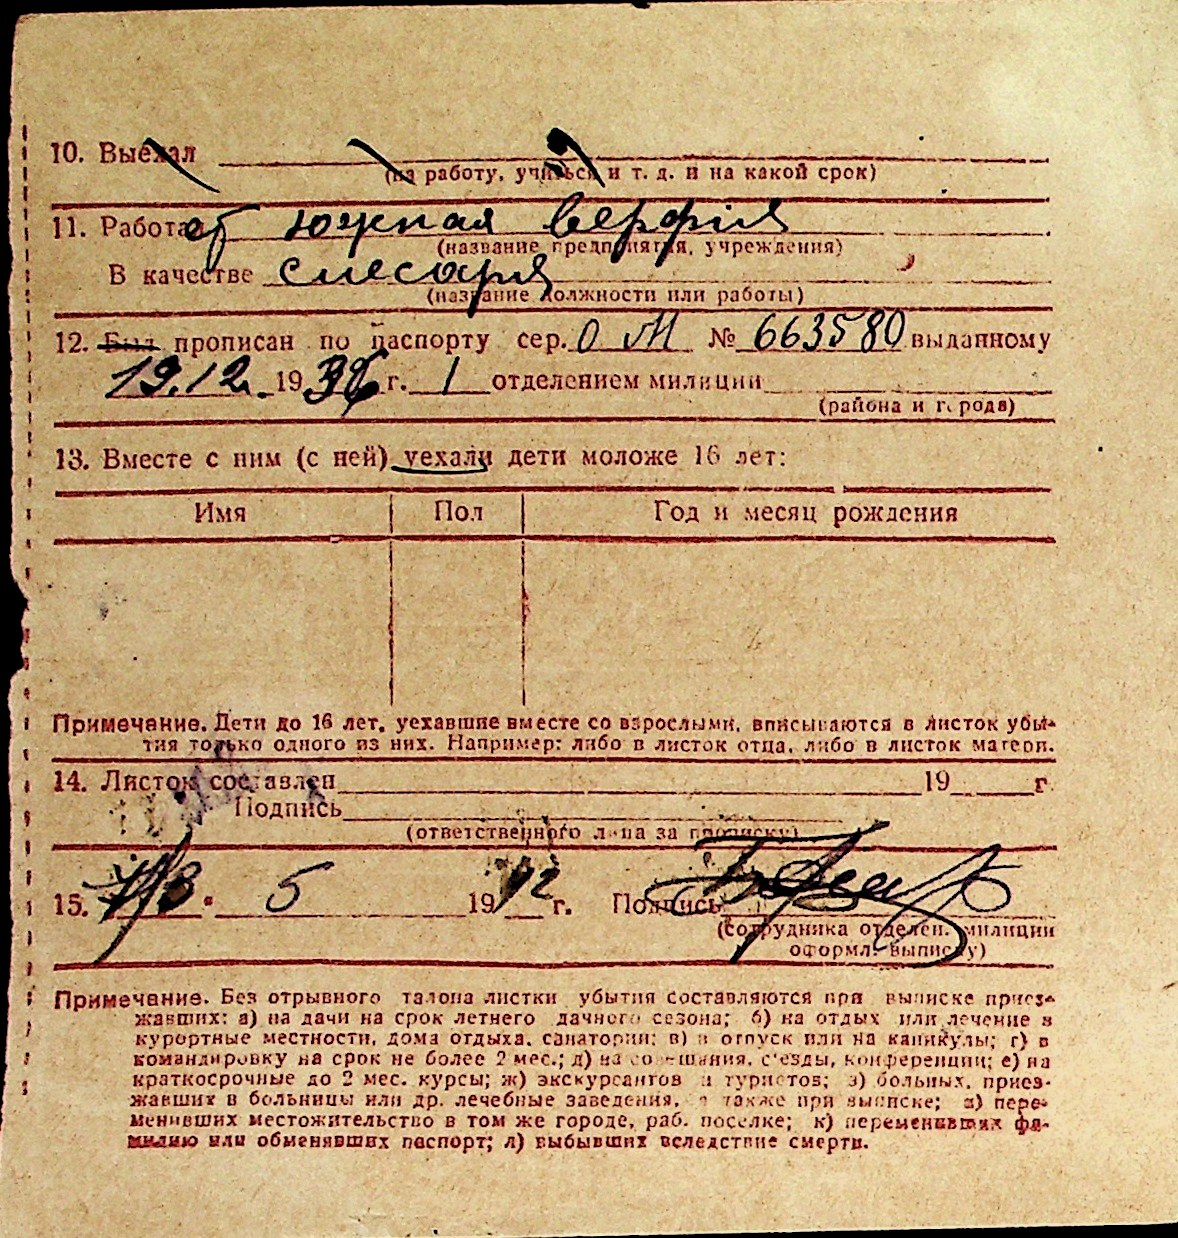 10. Выехал
(на работу, учиться и т. д. и на какой срок)
11. Работал южная верфия
(название предприятия, учреждения)
В качестве слесаря
(название должности или работы)
12. Был прописан по паспорту сер. О М № 663580 выданному
19.12. 19 г. 1 отделением милиции
(района и города)
13. Вместе с ним (с ней) уехали дети моложе 16 лет:
Имя Пол Год и месяц рождения
Примечание. Дети до 16 лет, уехавшие вместе со взрослыми, вписываются в листок убы-
тия только одного из них. Например: либо в листок отца, либо в листок матери.
14. Листок составлен 19 г.
Подпись
(ответственного лица за прописку)
15. 5 19 г. Подпись
(сотрудника отделен. милиции
оформл. выписку)
Примечание. Без отрывного талона листки убытия составляются при выписке приез-
жавших: а) на дачи на срок летнего дачного сезона; б) на отдых или лечение в
курортные местности, дома отдыха, санатории; в) в отпуск или на каникулы; г) в
командировку на срок не более 2 мес.; д) на совещания, съезды, конференции; е) на
краткосрочные до 2 мес. курсы; ж) экскурсантов и туристов; з) больных, приез-
жавших в больницы или др. лечебные заведения, а также при выписке; и) пере-
менивших местожительство в том же городе, раб. поселке; к) переменивших фа-
милию или обменявших паспорт; л) выбывших вследствие смерти.